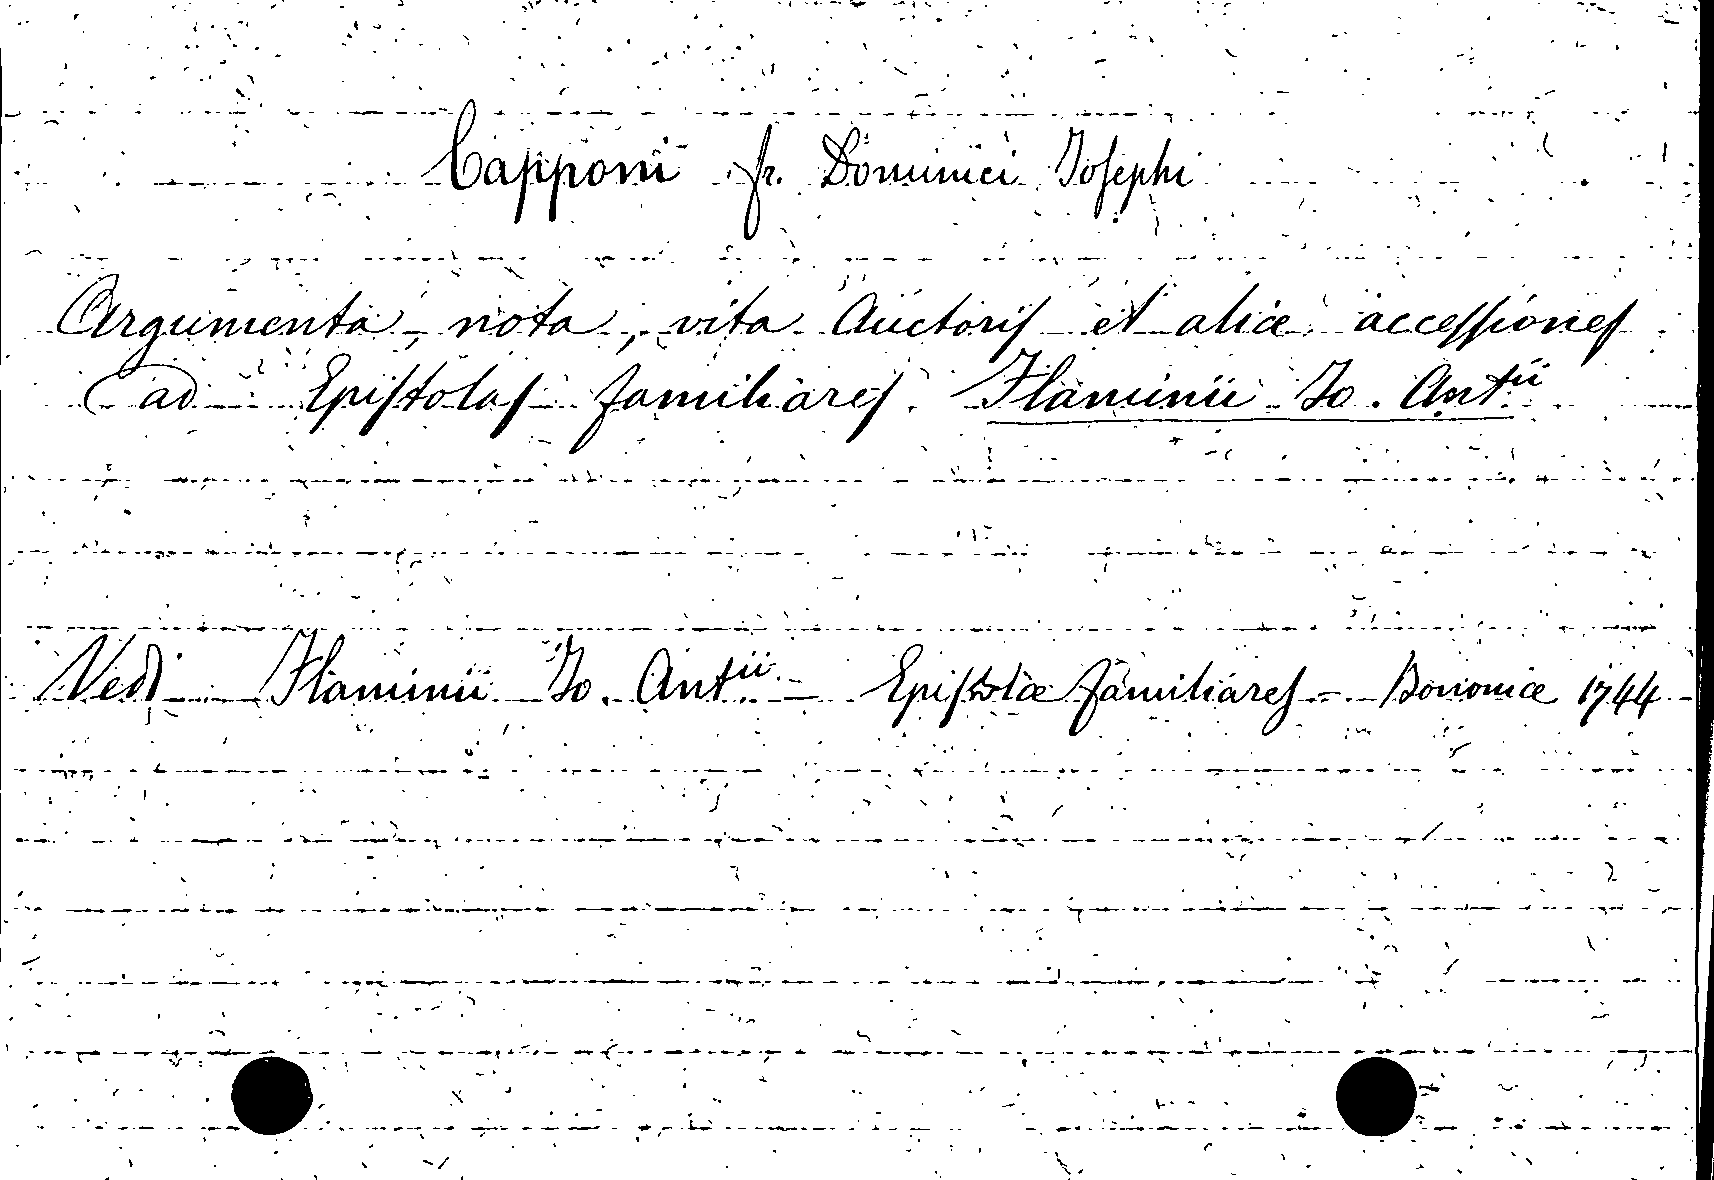 Capponi fr. Dominici Josephi
Argumenta, nota, vita Auctoris et aliæ accessiones
ad Epistolas familiares. Flaminii Jo. Antii
Vedi Flaminii Jo. Antii - Epistolæ familiares - Bononiæ 1744